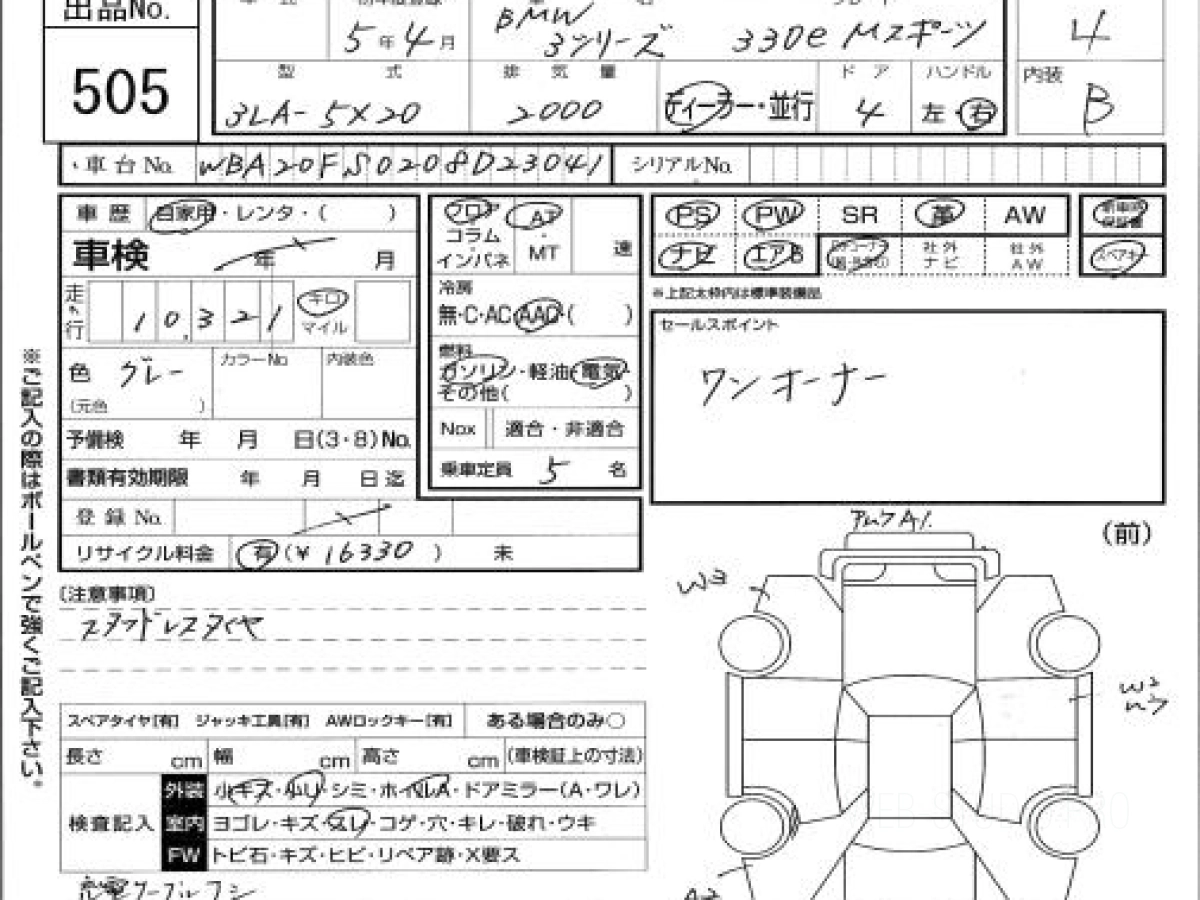 出品No.
505
5年4月
BMW
3シリーズ 330e Mスポーツ
4
型 式
排 気 量
ド ア
ハンドル
内装
3LA-5X20
2000
ディーラー・並行
4
左・右
B
車台No. WBA20FS0208D23041
シリアルNo.
車歴 自家用・レンタ・( )
車検 年 月
走行 10,321 キロ
マイル
色 グレー
(元色 )
カラーNo
内装色
予備検 年 月 日(3・8)No.
書類有効期限 年 月 日迄
登録No.
リサイクル料金 有(¥ 16330 ) 未
フロア
コラム
インパネ
AT
MT
速
冷房
無・C・AC・AAC・( )
燃料
ガソリン・軽油・電気・
その他( )
Nox 適合・非適合
乗車定員 5 名
PS PW SR 革 AW
ナビ エアB
社外
ナビ
社外
AW
スペアキー
※上記太枠内は標準装備品
セールスポイント
ワンオーナー
※ご記入の際はボールペンで強くご記入下さい。
(注意事項)
スタッドレスタイヤ
(前)
W3
W2
スペアタイヤ[有] ジャッキ工具[有] AWロックキー[有] ある場合のみ○
長さ cm 幅 cm 高さ cm (車検証上の寸法)
検査記入
外装 小キズ・ムリ・シミ・ホイルA・ドアミラー(A・ワレ)
室内 ヨゴレ・キズ・スレ・コゲ・穴・キレ・破れ・ウキ
FW トビ石・キズ・ヒビ・リペア跡・X要ス
充電ケーブルナシ